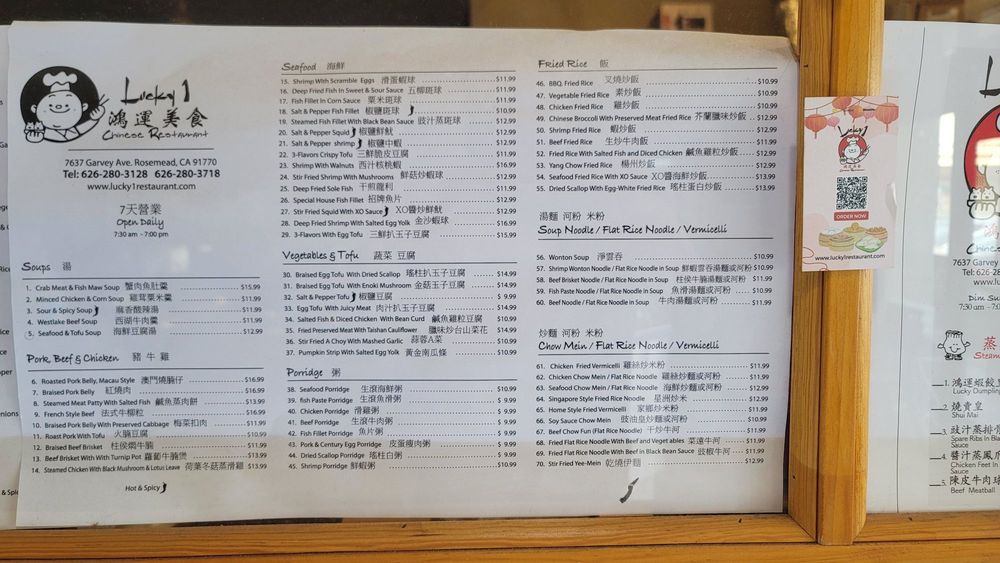 Lucky 1
鴻運美食
Chinese Restaurant
7637 Garvey Ave. Rosemead, CA 91770
Tel: 626-280-3128 626-280-3718
www.lucky1restaurant.com
7天營業
Open Daily
7:30 am - 7:00 pm
Soups 湯
1. Crab Meat & Fish Maw Soup 蟹肉魚肚羹 $15.99
2. Minced Chicken & Corn Soup 雞茸粟米羹 $11.99
3. Sour & Spicy Soup 麻香酸辣湯 $11.99
4. Westlake Beef Soup 西湖牛肉羹 $11.99
5. Seafood & Tofu Soup 海鮮豆腐湯 $12.99
Pork, Beef & Chicken 豬 牛 雞
6. Roasted Pork Belly, Macau Style 澳門燒腩仔 $16.99
7. Braised Pork Belly 紅燒肉 $16.99
8. Steamed Meat Patty With Salted Fish 鹹魚蒸肉餅 $13.99
9. French Style Beef 法式牛柳粒 $16.99
10. Braised Pork Belly With Preserved Cabbage 梅菜扣肉 $11.99
11. Roast Pork With Tofu 火腩豆腐 $10.99
12. Braised Beef Brisket 柱侯焗牛腩 $11.99
13. Beef Brisket With With Turnip Pot 蘿蔔牛腩煲 $13.99
14. Steamed Chicken With Black Mushroom & Lotus Leave 荷葉冬菇蒸滑雞 $13.99
Hot & Spicy
Seafood 海鮮
15. Shrimp With Scramble Eggs 滑蛋蝦球 $11.99
16. Deep Fried Fish In Sweet & Sour Sauce 五柳斑球 $11.99
17. Fish Fillet In Corn Sauce 粟米斑球 $11.99
18. Salt & Pepper Fish Fillet 椒鹽斑球 $10.99
19. Steamed Fish Fillet With Black Bean Sauce 豉汁蒸斑球 $12.99
20. Salt & Pepper Squid 椒鹽鮮魷 $12.99
21. Salt & Pepper shrimp 椒鹽中蝦 $12.99
22. 3-Flavors Crispy Tofu 三鮮脆皮豆腐 $11.99
23. Shrimp With Walnuts 西汁核桃蝦 $16.99
24. Stir Fried Shrimp With Mushrooms 鮮菇炒蝦球 $12.99
25. Deep Fried Sole Fish 干煎龍利 $11.99
26. Special House Fish Fillet 招牌魚片 $12.99
27. Stir Fried Squid With XO Sauce XO醬炒鮮魷 $12.99
28. Deep Fried Shrimp With Salted Egg Yolk 金沙蝦球 $16.99
29. 3-Flavors With Egg Tofu 三鮮扒玉子豆腐 $15.99
Vegetables & Tofu 蔬菜 豆腐
30. Braised Egg Tofu With Dried Scallop 瑤柱扒玉子豆腐 $14.99
31. Braised Egg Tofu With Enoki Mushroom 金菇玉子豆腐 $14.99
32. Salt & Pepper Tofu 椒鹽豆腐 $ 9.99
33. Egg Tofu With Juicy Meat 肉汁扒玉子豆腐 $14.99
34. Salted Fish & Diced Chicken With Bean Curd 鹹魚雞粒豆腐 $10.99
35. Fried Preserved Meat With Taishan Cauliflower 臘味炒台山菜花 $14.99
36. Stir Fried A Choy With Mashed Garlic 蒜蓉A菜 $10.99
37. Pumpkin Strip With Salted Egg Yolk 黃金南瓜條 $10.99
Porridge 粥
38. Seafood Porridge 生滾海鮮粥 $10.99
39. fish Paste Porridge 生滾魚滑粥 $ 9.99
40. Chicken Porridge 滑雞粥 $ 9.99
41. Beef Porridge 生滾牛肉粥 $ 9.99
42. Fish Fillet Porridge 魚片粥 $ 9.99
43. Pork & Century Egg Porridge 皮蛋瘦肉粥 $ 9.99
44. Dried Scallop Porridge 瑤柱白粥 $ 9.99
45. Shrimp Porridge 鮮蝦粥 $10.99
Fried Rice 飯
46. BBQ. Fried Rice 叉燒炒飯 $10.99
47. Vegetable Fried Rice 素炒飯 $10.99
48. Chicken Fried Rice 雞炒飯 $10.99
49. Chinese Broccoli With Preserved Meat Fried Rice 芥蘭臘味炒飯 $12.99
50. Shrimp Fried Rice 蝦炒飯 $12.99
51. Beef Fried Rice 生炒牛肉飯 $11.99
52. Fried Rice With Salted Fish and Diced Chicken 鹹魚雞粒炒飯 $12.99
53. Yang Chow Fried Rice 楊州炒飯 $12.99
54. Seafood Fried Rice With XO Sauce XO醬海鮮炒飯 $13.99
55. Dried Scallop With Egg-White Fried Rice 瑤柱蛋白炒飯 $13.99
湯麵 河粉 米粉
Soup Noodle / Flat Rice Noodle / Vermicelli
56. Wonton Soup 淨雲吞 $10.99
57. Shrimp Wonton Noodle / Flat Rice Noodle in Soup 鮮蝦雲吞湯麵或河粉 $10.99
58. Beef Brisket Noodle / Flat Rice Noodle in Soup 柱侯牛腩湯麵或河粉 $11.99
59. Fish Paste Noodle / Flat Rice Noodle in Soup 魚滑湯麵或河粉 $10.99
60. Beef Noodle / Flat Rice Noodle in Soup 牛肉湯麵或河粉 $11.99
炒麵 河粉 米粉
Chow Mein / Flat Rice Noodle / Vermicelli
61. Chicken Fried Vermicelli 雞絲炒米粉 $11.99
62. Chicken Chow Mein / Flat Rice Noodle 雞絲炒麵或河粉 $11.99
63. Seafood Chow Mein / Flat Rice Noodle 海鮮炒麵或河粉 $12.99
64. Singapore Style Fried Rice Noodle 星洲炒米 $12.99
65. Home Style Fried Vermicelli 家鄉炒米粉 $11.99
66. Soy Sauce Chow Mein 豉油皇炒麵或河粉 $10.99
67. Beef Chow Fun (Flat Rice Noodle) 干炒牛河 $11.99
68. Fried Flat Rice Noodle With Beef and Vegetables 菜遠牛河 $11.99
69. Fried Flat Rice Noodle With Beef in Black Bean Sauce 豉椒牛河 $11.99
70. Stir Fried Yee-Mein 乾燒伊麵 $12.99
Lucky 1
ORDER NOW
www.lucky1restaurant.com
7637 Garvey
Tel: 626-28
www.lu
Din Su
7:30 am - 7:0
蒸
Steam
1. 鴻運蝦餃
Lucky Dumpling
2. 燒賣皇
Shui Mai
3. 豉汁蒸排骨
Spare Ribs in Bla
Sauce
4. 醬汁蒸鳳爪
Chicken Feet In
Sauce
5. 陳皮牛肉球
Beef Meatball